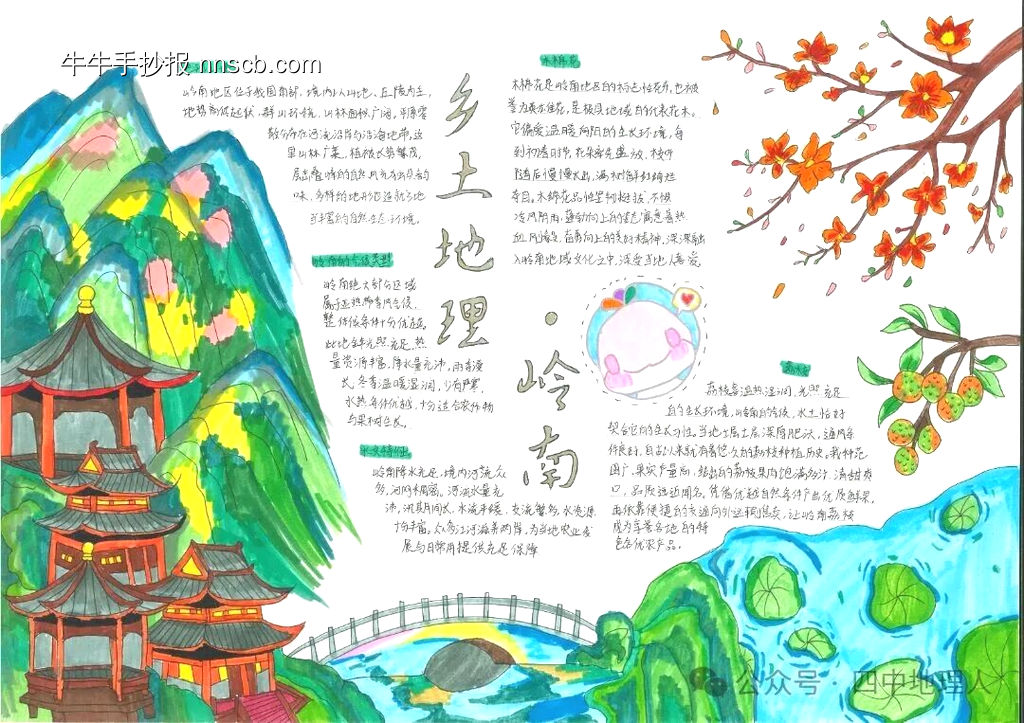 牛牛手抄报 nnscb.com
乡土地理·岭南
岭南地区位于我国南部,境内以山地、丘陵为主,
地势高低起伏,群山环绕,山林面积广阔,平原零
散分布在河流沿岸与沿海地带,这
里山林广袤,植被长势繁茂,
味,多样的地形塑造就了当地
丰富的自然生态环境。
岭南的气候类型
岭南绝大部分区域
属于亚热带季风气候,
整体气候条件十分优越。
此地全年光照充足,热
量资源丰富,降水量充沛,雨季漫
长,冬季温暖湿润,少有严寒,
水热条件优越,十分适合农作物
与果树生长。
水文特征
岭南降水充足,境内河流众
多,河网稠密。河流水量充
沛,汛期时间长,水流平缓,支流繁多,水资源
十分丰富。众多江河滋养两岸,为当地农业发
展与日常用提供充足保障
木棉花
木棉花是岭南地区的特色性花卉,也被
誉为英雄花,是极具地域自的代表花木。
它偏爱温暖向阳的生长环境,每
到初春时节,花朵率先盛放,枝叶
随后慢慢长出,满树红花绚烂
夺目。木棉花品性坚韧挺拔,不惧
冷风阴雨,蓬勃向上的姿态寓意着热
血、风骨、奋勇向上的美好精神,深深融
入岭南地域文化之中,深受当地人喜爱
荔枝
荔枝喜温热湿润、光照充足
的生长环境,岭南的气候、水土恰好
契合它的生长习性。当地土层土层深厚肥沃,通风条
件良好,自古以来就有着悠久的荔枝种植历史,栽种范
围广、果实产量高,结出的荔枝果肉饱满多汁、清甜爽
口,品质远近闻名,凭借优越自然条件产出优质鲜果,
再依靠便捷的交通向外运输售卖,让岭南荔枝
成为享誉各地的特
色名优农产品。
公众号·四中地理人